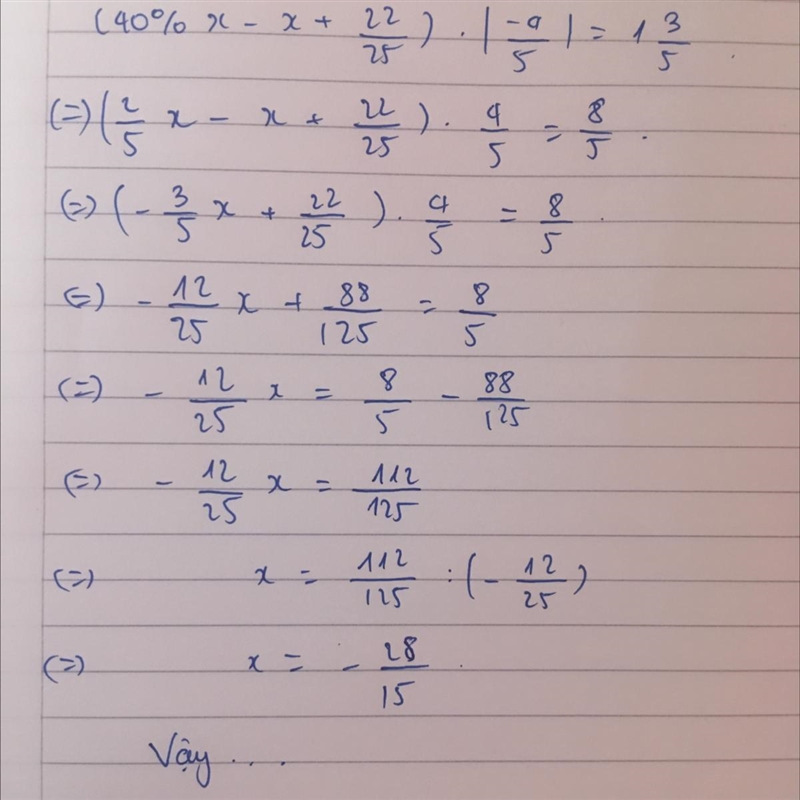 (40% x - x + 22/25) . |-4/5| = 1 3/5 .
(=) (2/5 x - x + 22/25) . 4/5 = 8/5 .
(=) (- 3/5 x + 22/25) . 4/5 = 8/5 .
(=) - 12/25 x + 88/125 = 8/5
(=) - 12/25 x = 8/5 - 88/125
(=) - 12/25 x = 112/125
(=) x = 112/125 : (- 12/25)
(=) x = - 28/15 .
Vậy ....